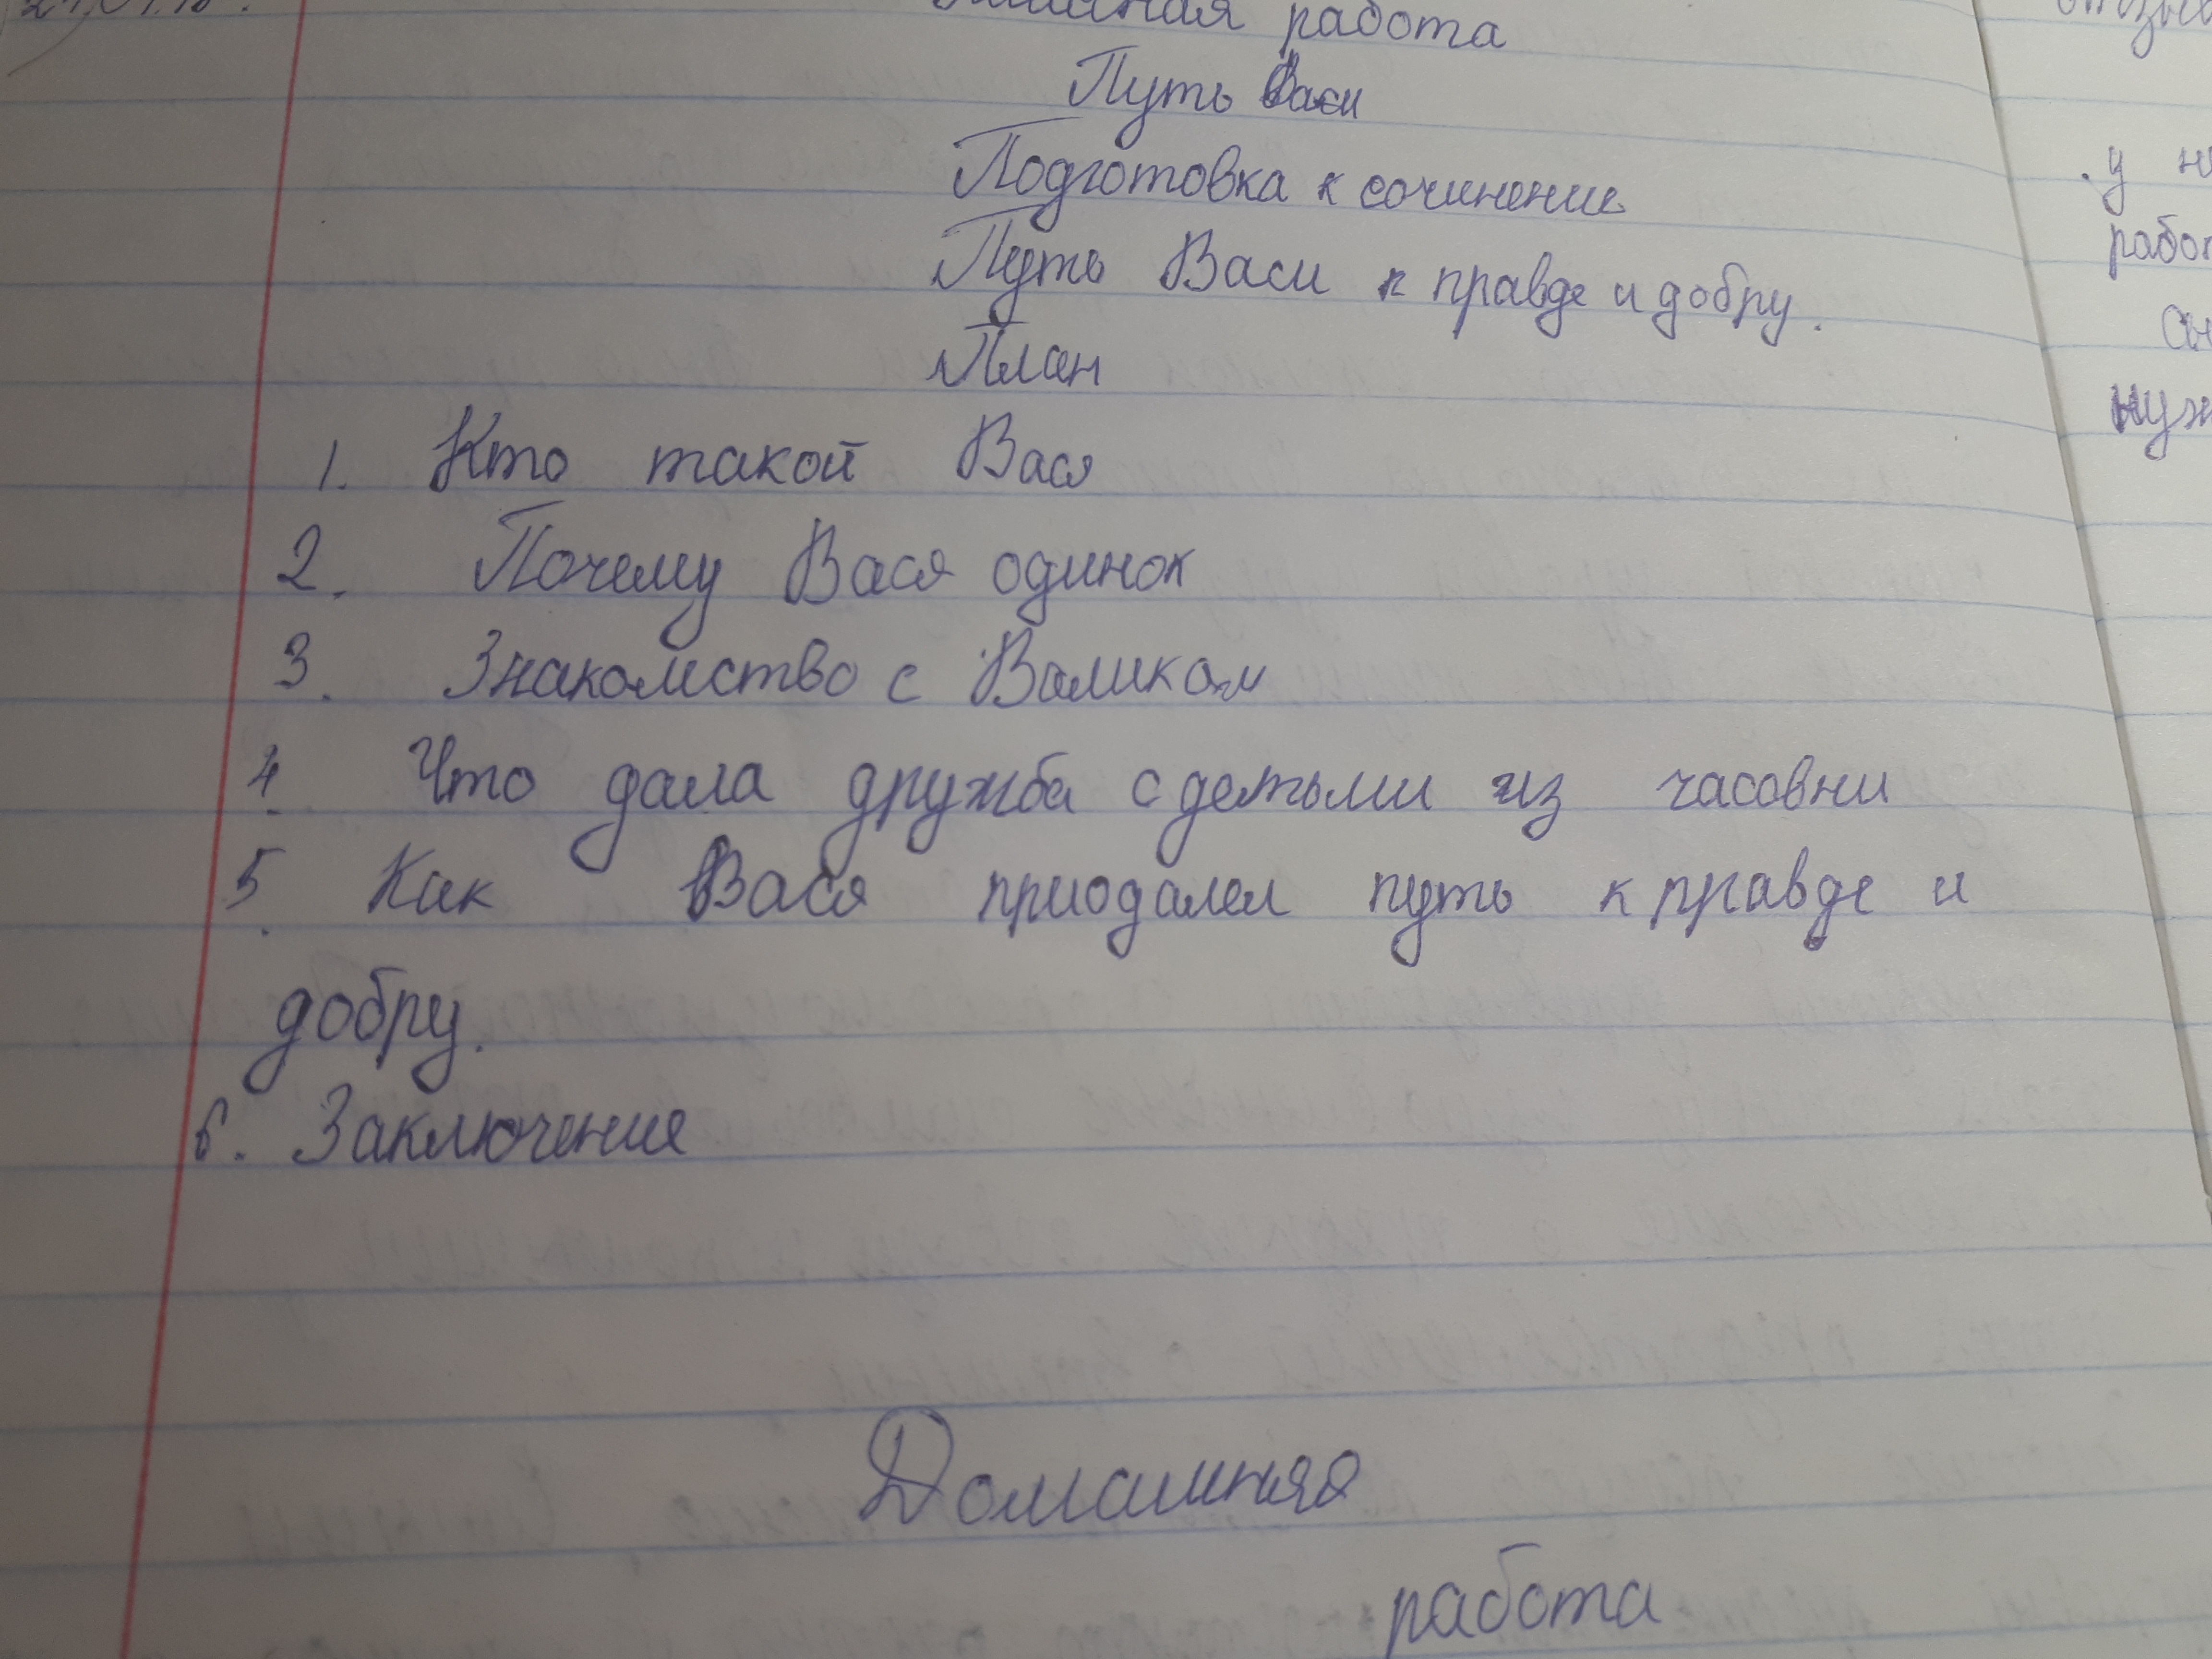 работа
Путь Васи
Подготовка к сочинение
Путь Васи к правде и добру.
План
1. Кто такой Вася
2. Почему Вася одинок
3. Знакомство с Валиком
4. Что дала дружба с детьми из часовни
5. Как Вася приодалел путь к правде и
добру.
6. Заключение
Домашняя
работа
у